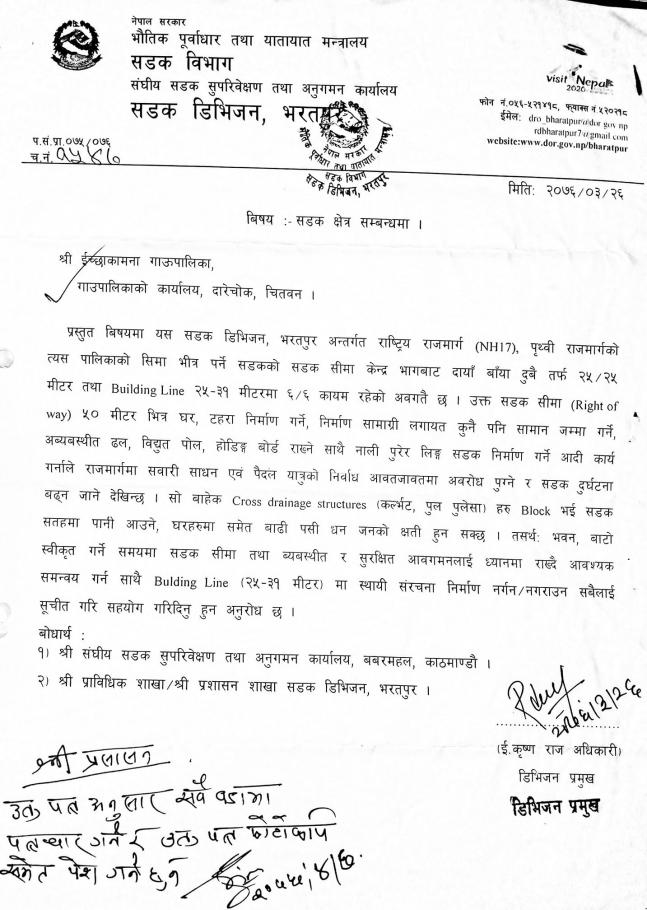 नेपाल सरकार
भौतिक पूर्वाधार तथा यातायात मन्त्रालय
सडक विभाग
संघीय सडक सुपरिवेक्षण तथा अनुगमन कार्यालय
सडक डिभिजन, भरतपुर
visit Nepal
2020
फोन नं.०५६-५२१४१८, फ्याक्स नं ५२०२१८
ईमेल: dro_bharatpur@dor gov np
rdbharatpur7@gmail com
website:www.dor.gov.np/bharatpur
नेपाल सरकार
भौतिक पूर्वाधार तथा यातायात मन्त्रालय
सडक विभाग
सडक डिभिजन, भरतपुर
प.सं.प्रा.०७५/०७६
च.नं.
मिति: २०७६/०३/२६
बिषय :- सडक क्षेत्र सम्बन्धमा ।
श्री ईच्छाकामना गाऊपालिका,
गाउपालिकाको कार्यालय, दारेचोक, चितवन ।
प्रस्तुत बिषयमा यस सडक डिभिजन, भरतपुर अन्तर्गत राष्ट्रिय राजमार्ग (NH17), पृथ्वी राजमार्गको
त्यस पालिकाको सिमा भीत्र पर्ने सडकको सडक सीमा केन्द्र भागबाट दायाँ बाँया दुबै तर्फ २५/२५
मीटर तथा Building Line २५-३१ मीटरमा ६/६ कायम रहेको अवगतै छ । उक्त सडक सीमा (Right of
way) ५० मीटर भित्र घर, टहरा निर्माण गर्ने, निर्माण सामाग्री लगायत कुनै पनि सामान जम्मा गर्ने,
अब्यबस्थीत ढल, विद्युत पोल, होडिङ्ग बोर्ड राख्ने साथै नाली पुरेर लिङ्क सडक निर्माण गर्ने आदी कार्य
गर्नाले राजमार्गमा सवारी साधन एवं पैदल यात्रुको निर्वाध आवतजावतमा अवरोध पुग्ने र सडक दुर्घटना
बढ्न जाने देखिन्छ । सो बाहेक Cross drainage structures (कल्भर्ट, पुल पुलेसा) हरु Block भई सडक
सतहमा पानी आउने, घरहरुमा समेत बाढी पसी धन जनको क्षती हुन सक्छ । तसर्थ: भवन, बाटो
स्वीकृत गर्ने समयमा सडक सीमा तथा ब्यबस्थीत र सुरक्षित आवगमनलाई ध्यानमा राख्दै आवश्यक
समन्वय गर्न साथै Bulding Line (२५-३१ मीटर) मा स्थायी संरचना निर्माण नर्गन/नगराउन सबैलाई
सूचीत गरि सहयोग गरिदिनु हुन अनुरोध छ ।
बोधार्थ :
१) श्री संघीय सडक सुपरिवेक्षण तथा अनुगमन कार्यालय, बबरमहल, काठमाण्डौ ।
२) श्री प्राविधिक शाखा/श्री प्रशासन शाखा सडक डिभिजन, भरतपुर ।
२०७६/३/२६
(ई.कृष्ण राज अधिकारी)
डिभिजन प्रमुख
डिभिजन प्रमुख
श्री प्रशासन
उक्त पत्र अनुसार सबै वडामा
पत्राचार गर्ने र उक्त पत्र फोटोकपि
समेत पेश गर्नु हुन